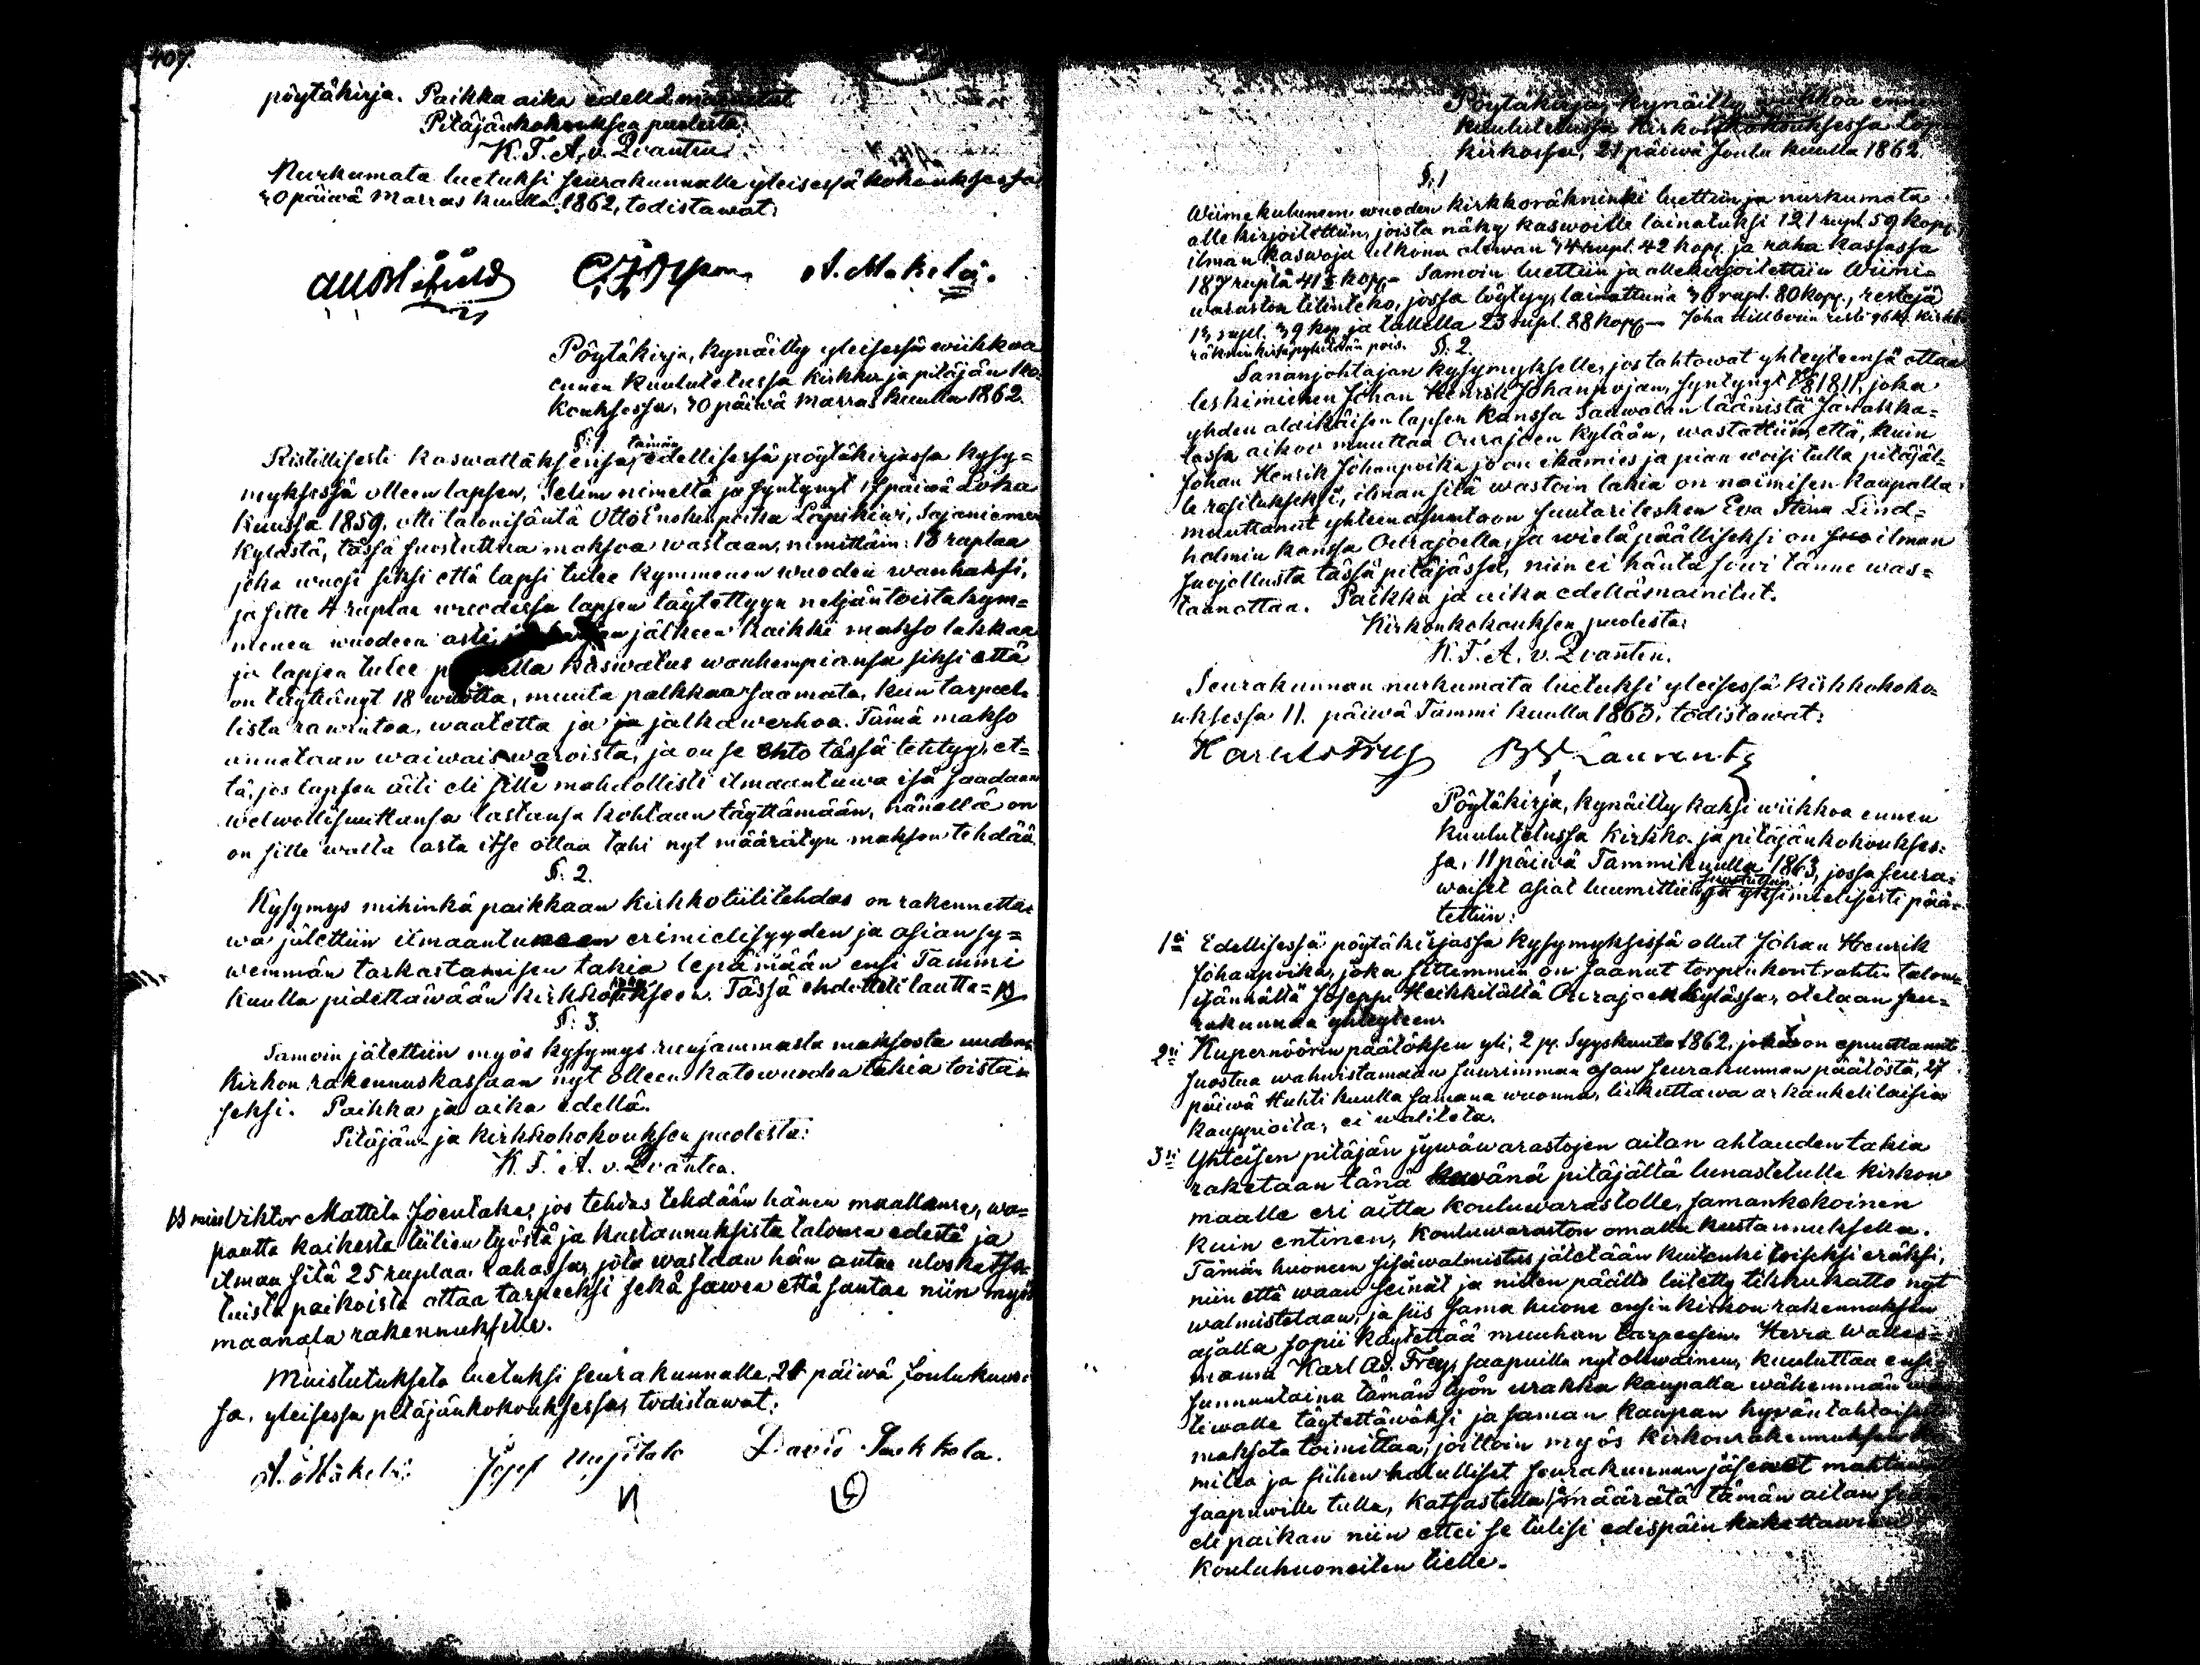 407.
pöytäkirja. Paikka aika edellämainitut
Pitäjänkokouksen puolesta:
K. F. A. v. Qvanten.
Nurkumata luetuksi seurakunnalle yleisessä kokouksessa
30 päiwä Marras kuulla 1862, todistawat:
A. Mäkelä.
Pöytäkirja, kynäilty yleisessä wiikkoa
ennen kuulutetussa kirkko ja pitäjän ko=
kouksessa, 30 päiwä Marras kuulla 1862.
§: 1
Kristillisesti kaswattaaksensa, tämän edellisessä pöytäkirjassa kysy=
myksessä olleen lapsen, Selim nimeltä ja syntynyt 17 päiwä Loka
kuussa 1859, otti talonisäntä Otto Enokinpoika Läpikiwi, Sajaniemen
kylästä, tässä suostuttua maksoa wastaan, nimittäin: 18 ruplaa
joka wuosi siksi että lapsi tulee kymmenen wuoden wanhaksi,
ja sitte 4 ruplaa wuodessa lapsen täytettyyn neljäntoistakym=
menen wuoden asti, jälkeen kaikki makso lakkaa
ja lapsen tulee kaswatus wanhempiansa siksi että
on täyttänyt 18 wuotta, muuta palkkaa saamata, kuin tarpeel=
lista rawintoa, waatetta ja ja jalkawerhoa. Tämä makso
annetaan waiwaiswaroista, ja on se ehto tässä tehtyy, et=
tä, jos lapsen äiti eli sille mahdollisti ilmaantuwa isä saadaan
welwollisuuttansa lastansa kohtaan täyttämään, hänellä on
on sille walta lasta itse ottaa tahi nyt määrätyn makson tehdää
§: 2.
Kysymys mihinkä paikkaan kirkkotiilitehdas on rakennetta=
wa jätettiin ilmaantuneen erimielisyyden ja asian sy=
wemmän tarkastamisen takia lepäämään ensi Tammi
kuulla pidettäwään kirkkokokoukseen. Tässä ehdotteli lautta=
§: 3.
Samoin jätettiin myös kysymys runjammasta maksosta uuden
kirkon rakennuskassaan nyt olleen katowuoden takia toistai
seksi. Paikka ja aika edellä.
Pitäjän- ja kirkkokokouksen puolesta:
K. F. A. v. Qvanten.
mies Viktor Mattila Joentaka, jos tehdas tehdään hänen maallansa, wa=
pautta kaikesta tiilien työstä ja kustannuksista talonsa edestä ja
ilman sitä 25 ruplaa rahassa, jota wastaan hän antaa uloskatso=
tuista paikoista ottaa tarpeeksi sekä sawea että santaa niin myös
maanala rakennukselle.
Muistutukseta luetuksi seurakunnalle, 21 päiwä Joulukuus=
sa, yleisessä pitäjänkokouksessa, todistawat:
A. Mäkelä. Josef Uusitalo David Pakkola.
Pöytäkirja, kynäilty wiikkoa ennen
kuulutetussa Kirkonkokouksessa Lopen
kirkossa, 21 päiwä Joulu kuulla 1862.
§: 1
Wiimekuluneen wuoden kirkkoräkninki luettiin ja nurkumata
alle kirjoitettiin, joista näky kaswoille lainatuksi 121 rupl. 59 kopp,
ilman kaswoja ulkona olewan 74 rupl. 42 kopp. ja raha kassassa
187 ruplä 41½ kopp.- Samoin luettiin ja allekirjoitettiin Wiini=
waraston tilinteko, jossa löytyy lainattuna 30 rupl. 80 kopp., restejä
13 rupl. 39 kop. ja tallella 23 rupl. 88 kopp.- Joha Millborin resti 96 ko. kirkko
räkninkista pyhitään pois.
§: 2.
Sananjohtajan kysymykselle, jos tahtowat yhteyteensä ottaa
leskimiehen Johan Henrik Johanpojan, syntynyt 1811, joka
yhden alaikäisen lapsen kanssa Saawolan läänistä Janakka=
lassa aikoo muuttaa Ourajoen kylään, wastattiin, että, kuin
Johan Henrik Johanpoika jo on ikämies ja pian woisi tulla pitäjäl=
le rasitukseksi, ilman sitä wastoin lakia on naimisen kaupalla
muuttanut yhteen asuntoon suutarilesken Eva Stina Lind=
holmin kanssa Ourajoella, ja wielä päälliseksi on suo ilman
suojellusta tässä pitäjässä, niin ei häntä sowi tänne was=
taanottaa. Paikka ja aika edellämainitut.
Kirkonkokouksen puolesta:
K. F. A. v. Qvanten.
Seurakunnan nurkumata luetuksi yleisessä kirkkokoko=
uksessa 11. päiwä Tammi kuulla 1863, todistawat:
Karl Ad Frey Laurent
Pöytäkirja, kynäilty kaksi wiikkoa ennen
kuulutetussa kirkko- ja pitäjänkokoukses=
sa, 11 päiwä Tammikuulla 1863, jossa seura=
waiset asiat luumittiin, suostuttiin ja yksimielisesti pää=
tettiin:
1si Edellisessä pöytäkirjassa kysymyksissä ollut Johan Henrik
Johanpoika, joka sittemmin on saanut torpin kontrahtin talon
isännältä Joseppi Heikkilältä Ourajoen kylässä, otetaan seu=
rakunnan yhteyteen.
2si Kupernöörin päätöksen yli, 2 p. Syyskuuta 1862, joka on epuuttanut
suostua wahwistamaan suurimman osan seurakunnan päätöstä, 27
päiwä Huhti kuulla samana wuonna, liikuttawa arkankelilaisia
kauppioita, ei waliteta.
3si Yhteisen pitäjän jywäwarastojen aitan ahtauden takia
raketaan tänä kewänä pitäjältä lunastetulle kirkon
maalle eri aitta kouluwarastolle, samankokoinen
kuin entinen, kouluwaraston omalla kustannuksella.
Tämän huoneen sisäwalmistus jätetään kuitenki toiseksi eräksi,
niin että waan seinät ja niiden päälle tiiletty tikkukatto nyt
walmistetaan, ja siis sama huone ensin kirkon rakennuksen
ajalla sopii käytettää muuhun tarpeesen. Herra walles=
manni Karl Ad. Frey, saapuilla nyt olewainen, kuuluttaa ensi
sunnuntaina tämän työn urakka kaupalla wähemmän waa
tiwalle täytettäwäksi ja saman kaupan hyväntahtoisesti
maksota toimittaa, joilloin myös kirkonrakennuksen ko
mitea ja siihen halulliset seurakunnan jäsenet mahtawat
saapuwille tulla, katsastella ja määrätä tämän aitan
eli paikan niin ettei se tulisi edespäin rakettawien
kouluhuoneiten tielle.